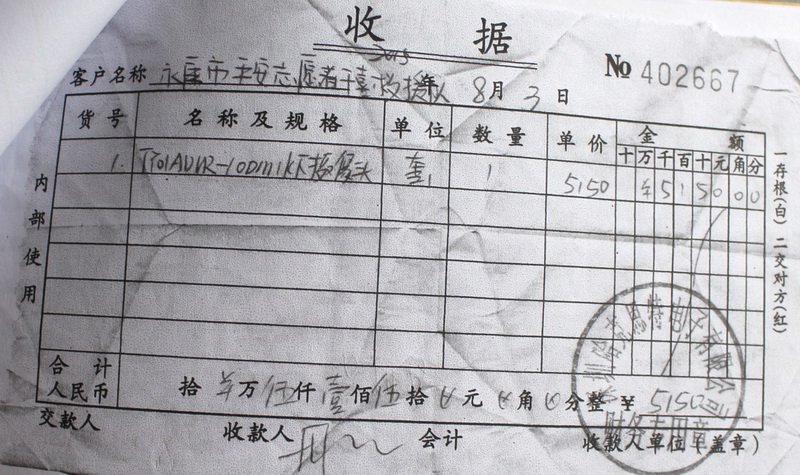 收 据
№ 402667
客户名称 永康市平安志愿者 救援队 2015年 8月 3日
货号 名称及规格 单位 数量 单价 金额
十 万 千 百 十 元 角 分
1. 下摄像头 套 1 5150 ¥ 5 1 5 0 0 0
内部使用
一存根(白) 二交对方(红)
合计人民币 拾 万 伍 仟 壹 佰 伍 拾 0 元 0 角 0 分整 ¥ 5150
交款人 收款人 会计 收款人单位(盖章)
思特电子有限公司
财务专用章